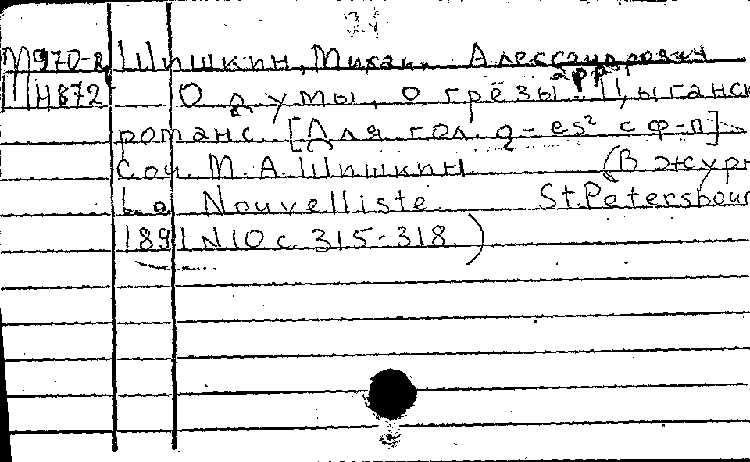 34
М970-2 Шишкин, Михаил Александрович
арр.
Н872 О думы, о грёзы! Цыганск
романс. [Для гол. g-es² с ф-п]
Соч. М. А. Шишкин (В журн
Le Nouvelliste St. Petersbour
1891 N 10 с. 315-318)